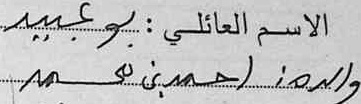 الاسم العائلي : بوعبيد
والده : احمد بن محمد